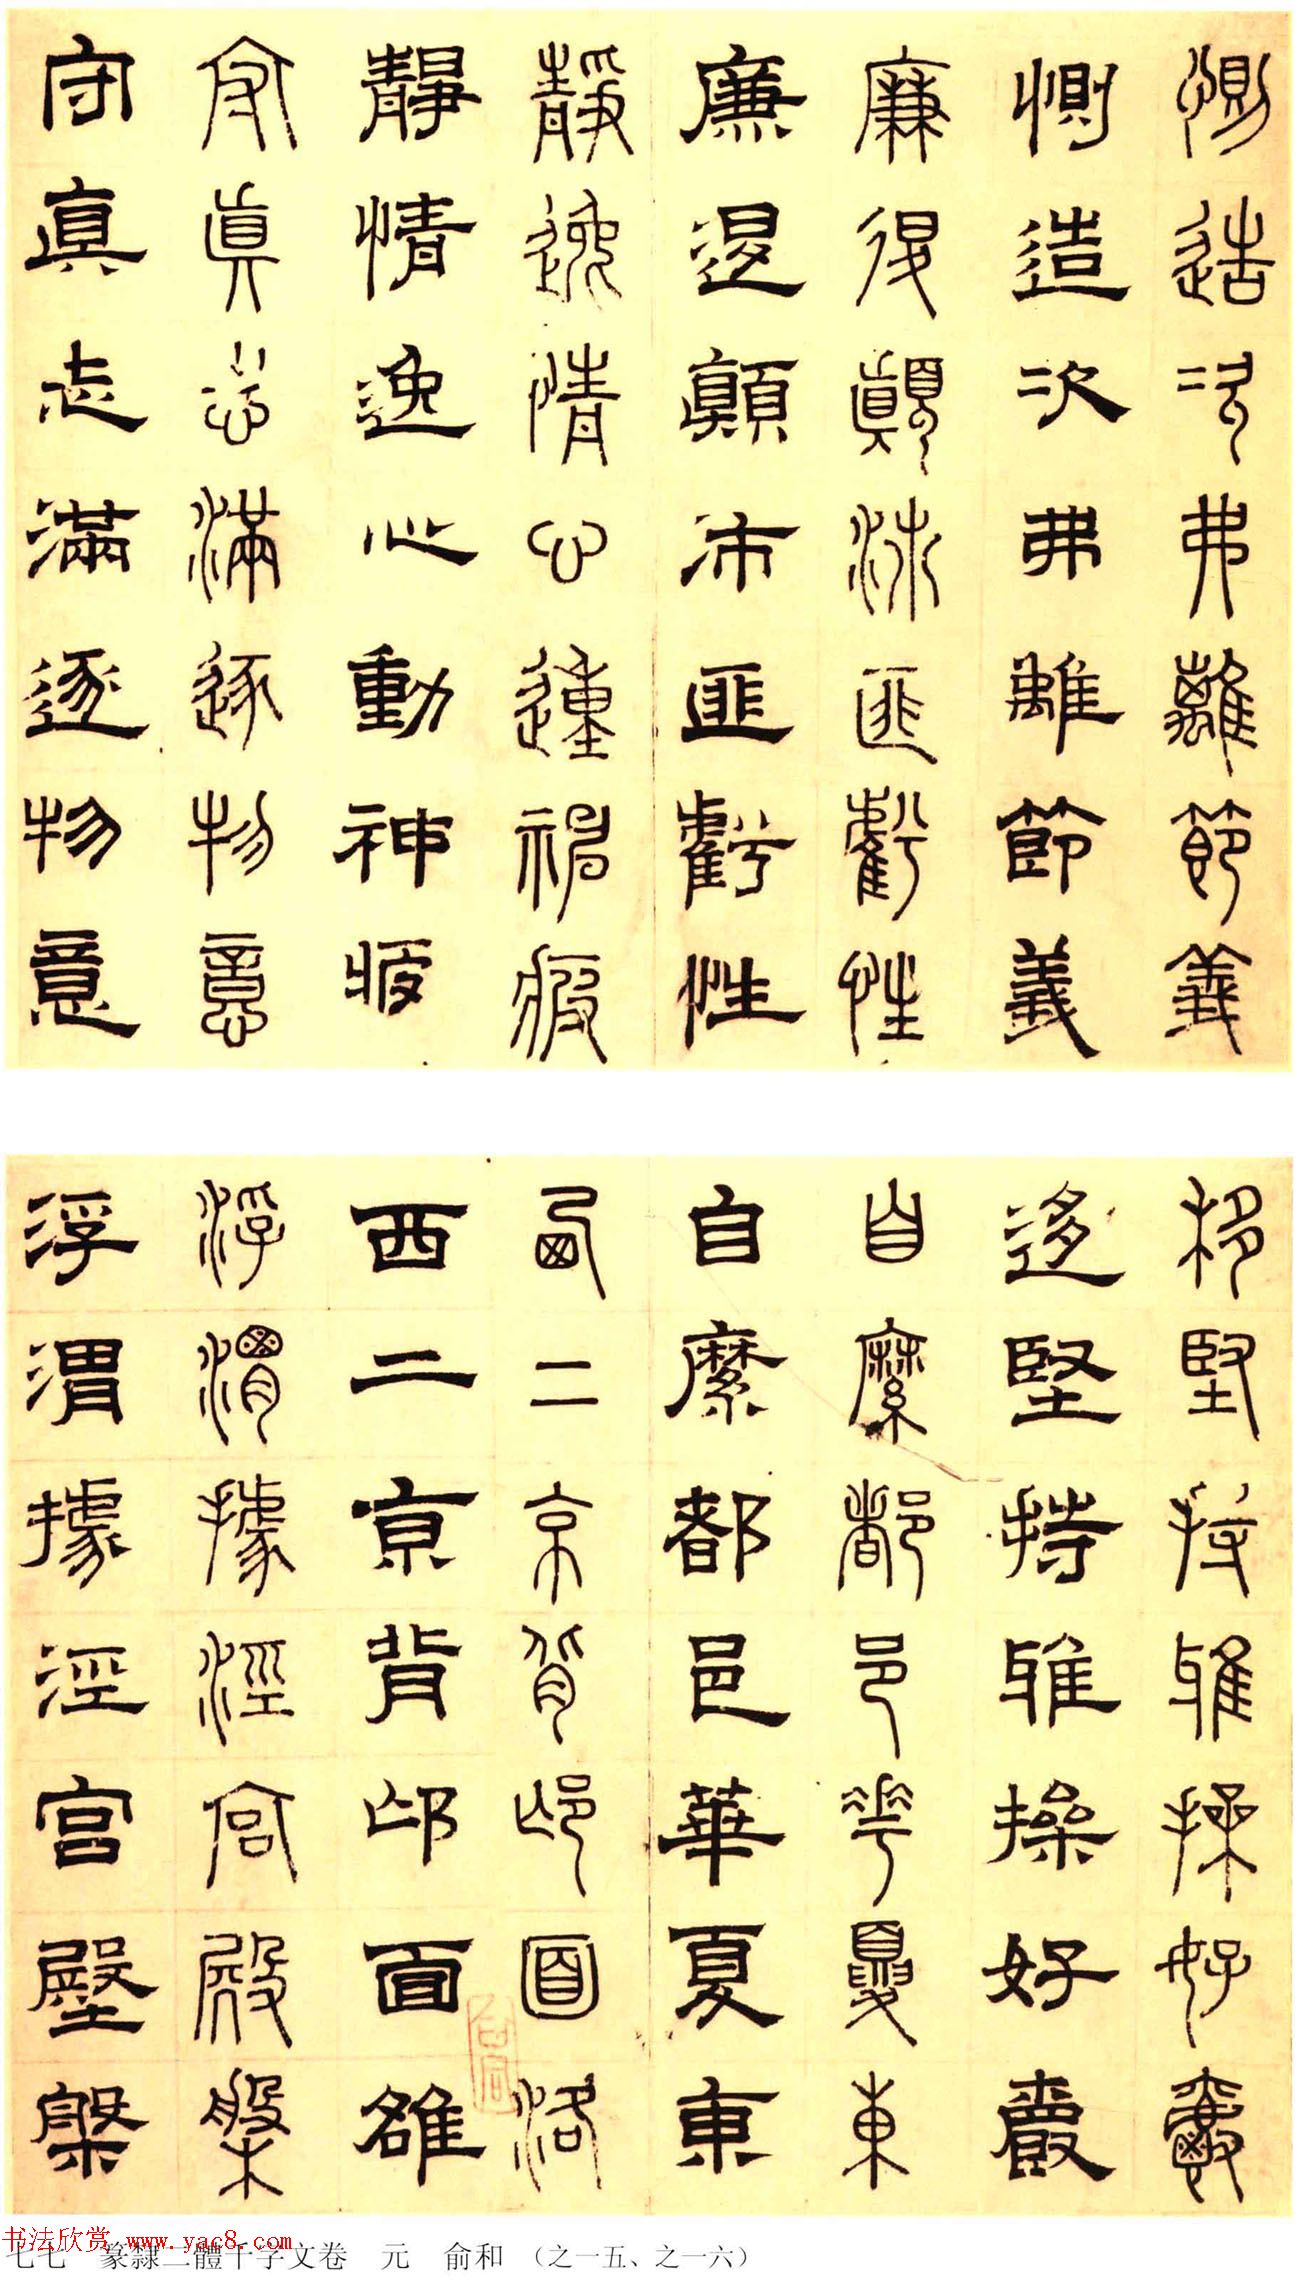 惻造次弗離節義
惻造次弗離節義
廉退顛沛匪虧性
廉退顛沛匪虧性
靜逸情心動神疲
靜情逸心動神疲
守眞志滿逐物意
守眞志滿逐物意
移堅持雅操好爵
迻堅持雅操好爵
自縻都邑華夏東
自縻都邑華夏東
西二京背邙面洛
西二京背邙面雒
浮渭據涇宮殿槃
浮渭據涇宮殿槃
书法欣赏 www.yac8.com
七七 篆隸二體千字文卷 元 俞和 （之一五、之一六）